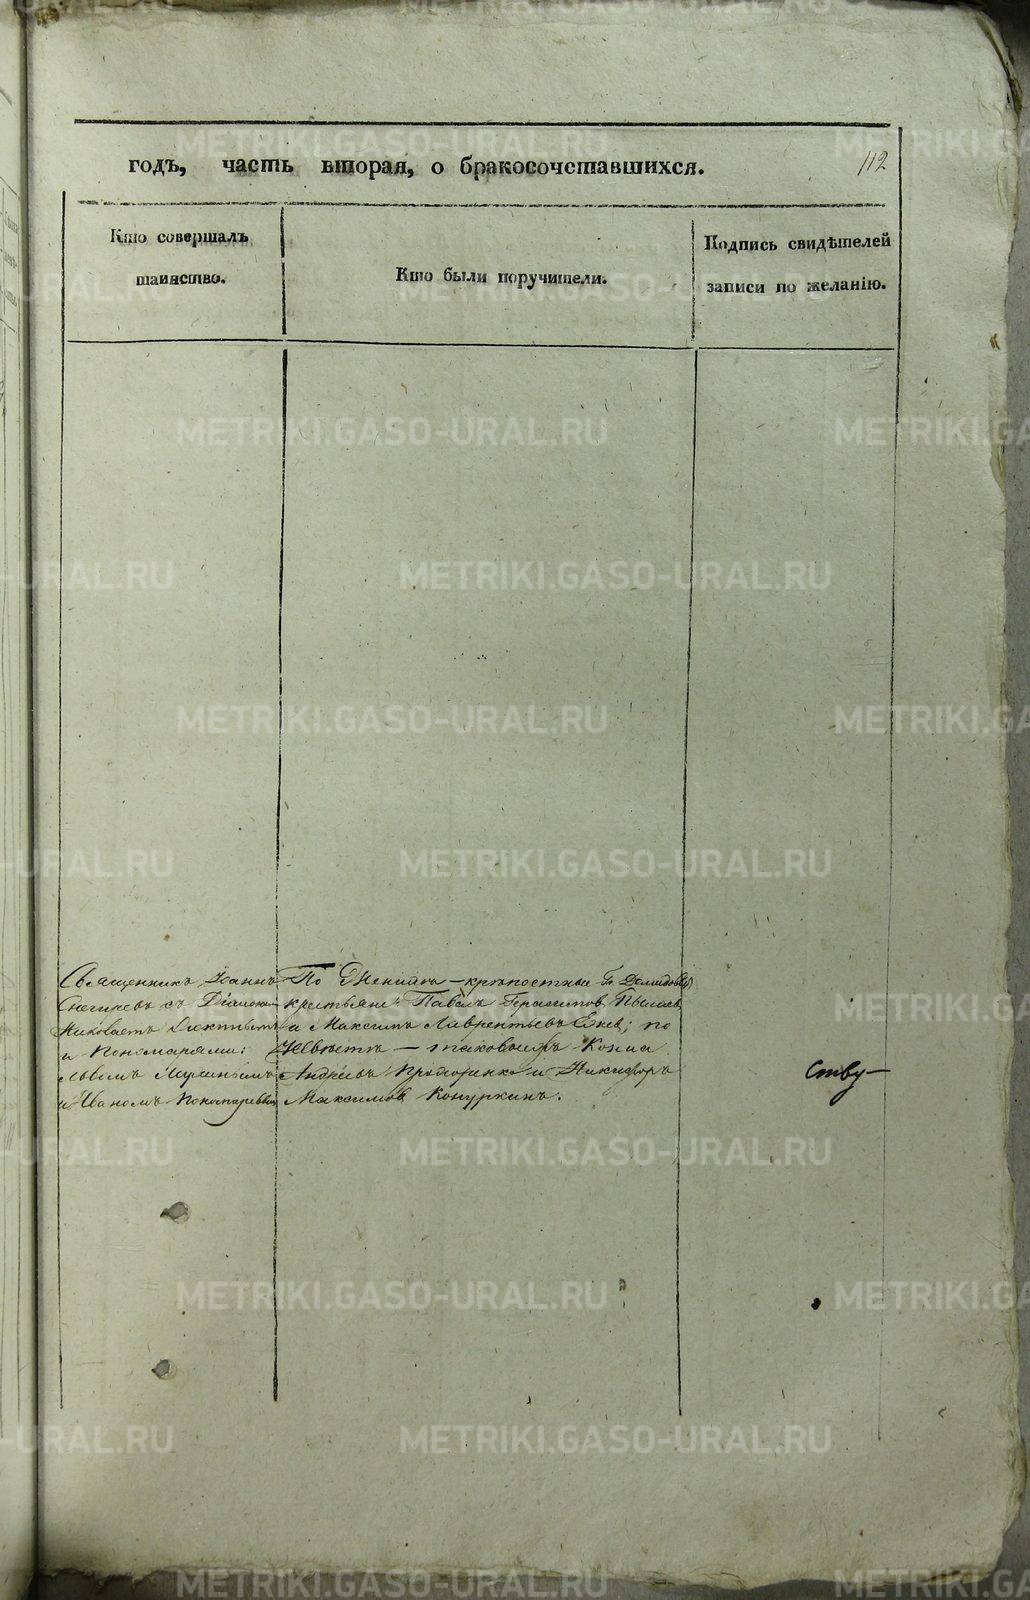 годъ, часть вторая, о бракосочетавшихся.
112
Кто совершалъ
таинство.
Кто были поручители.
Подпись свидѣтелей
записи по желанію.
Священникъ Іоаннъ
съ Діакономъ
Николаемъ
и Пономарями:
Львомъ
и Иваномъ Пономаревымъ
По Женихѣ – крѣпостные Г. Демидова
крестьяне Павелъ Герасимов
и Максимъ Лаврентьевъ по
Невѣстѣ – таковыежъ Козма
Андреевъ и Никифоръ
Максимов Конуркинъ.
ству-
METRIKI.GASO-URAL.RU